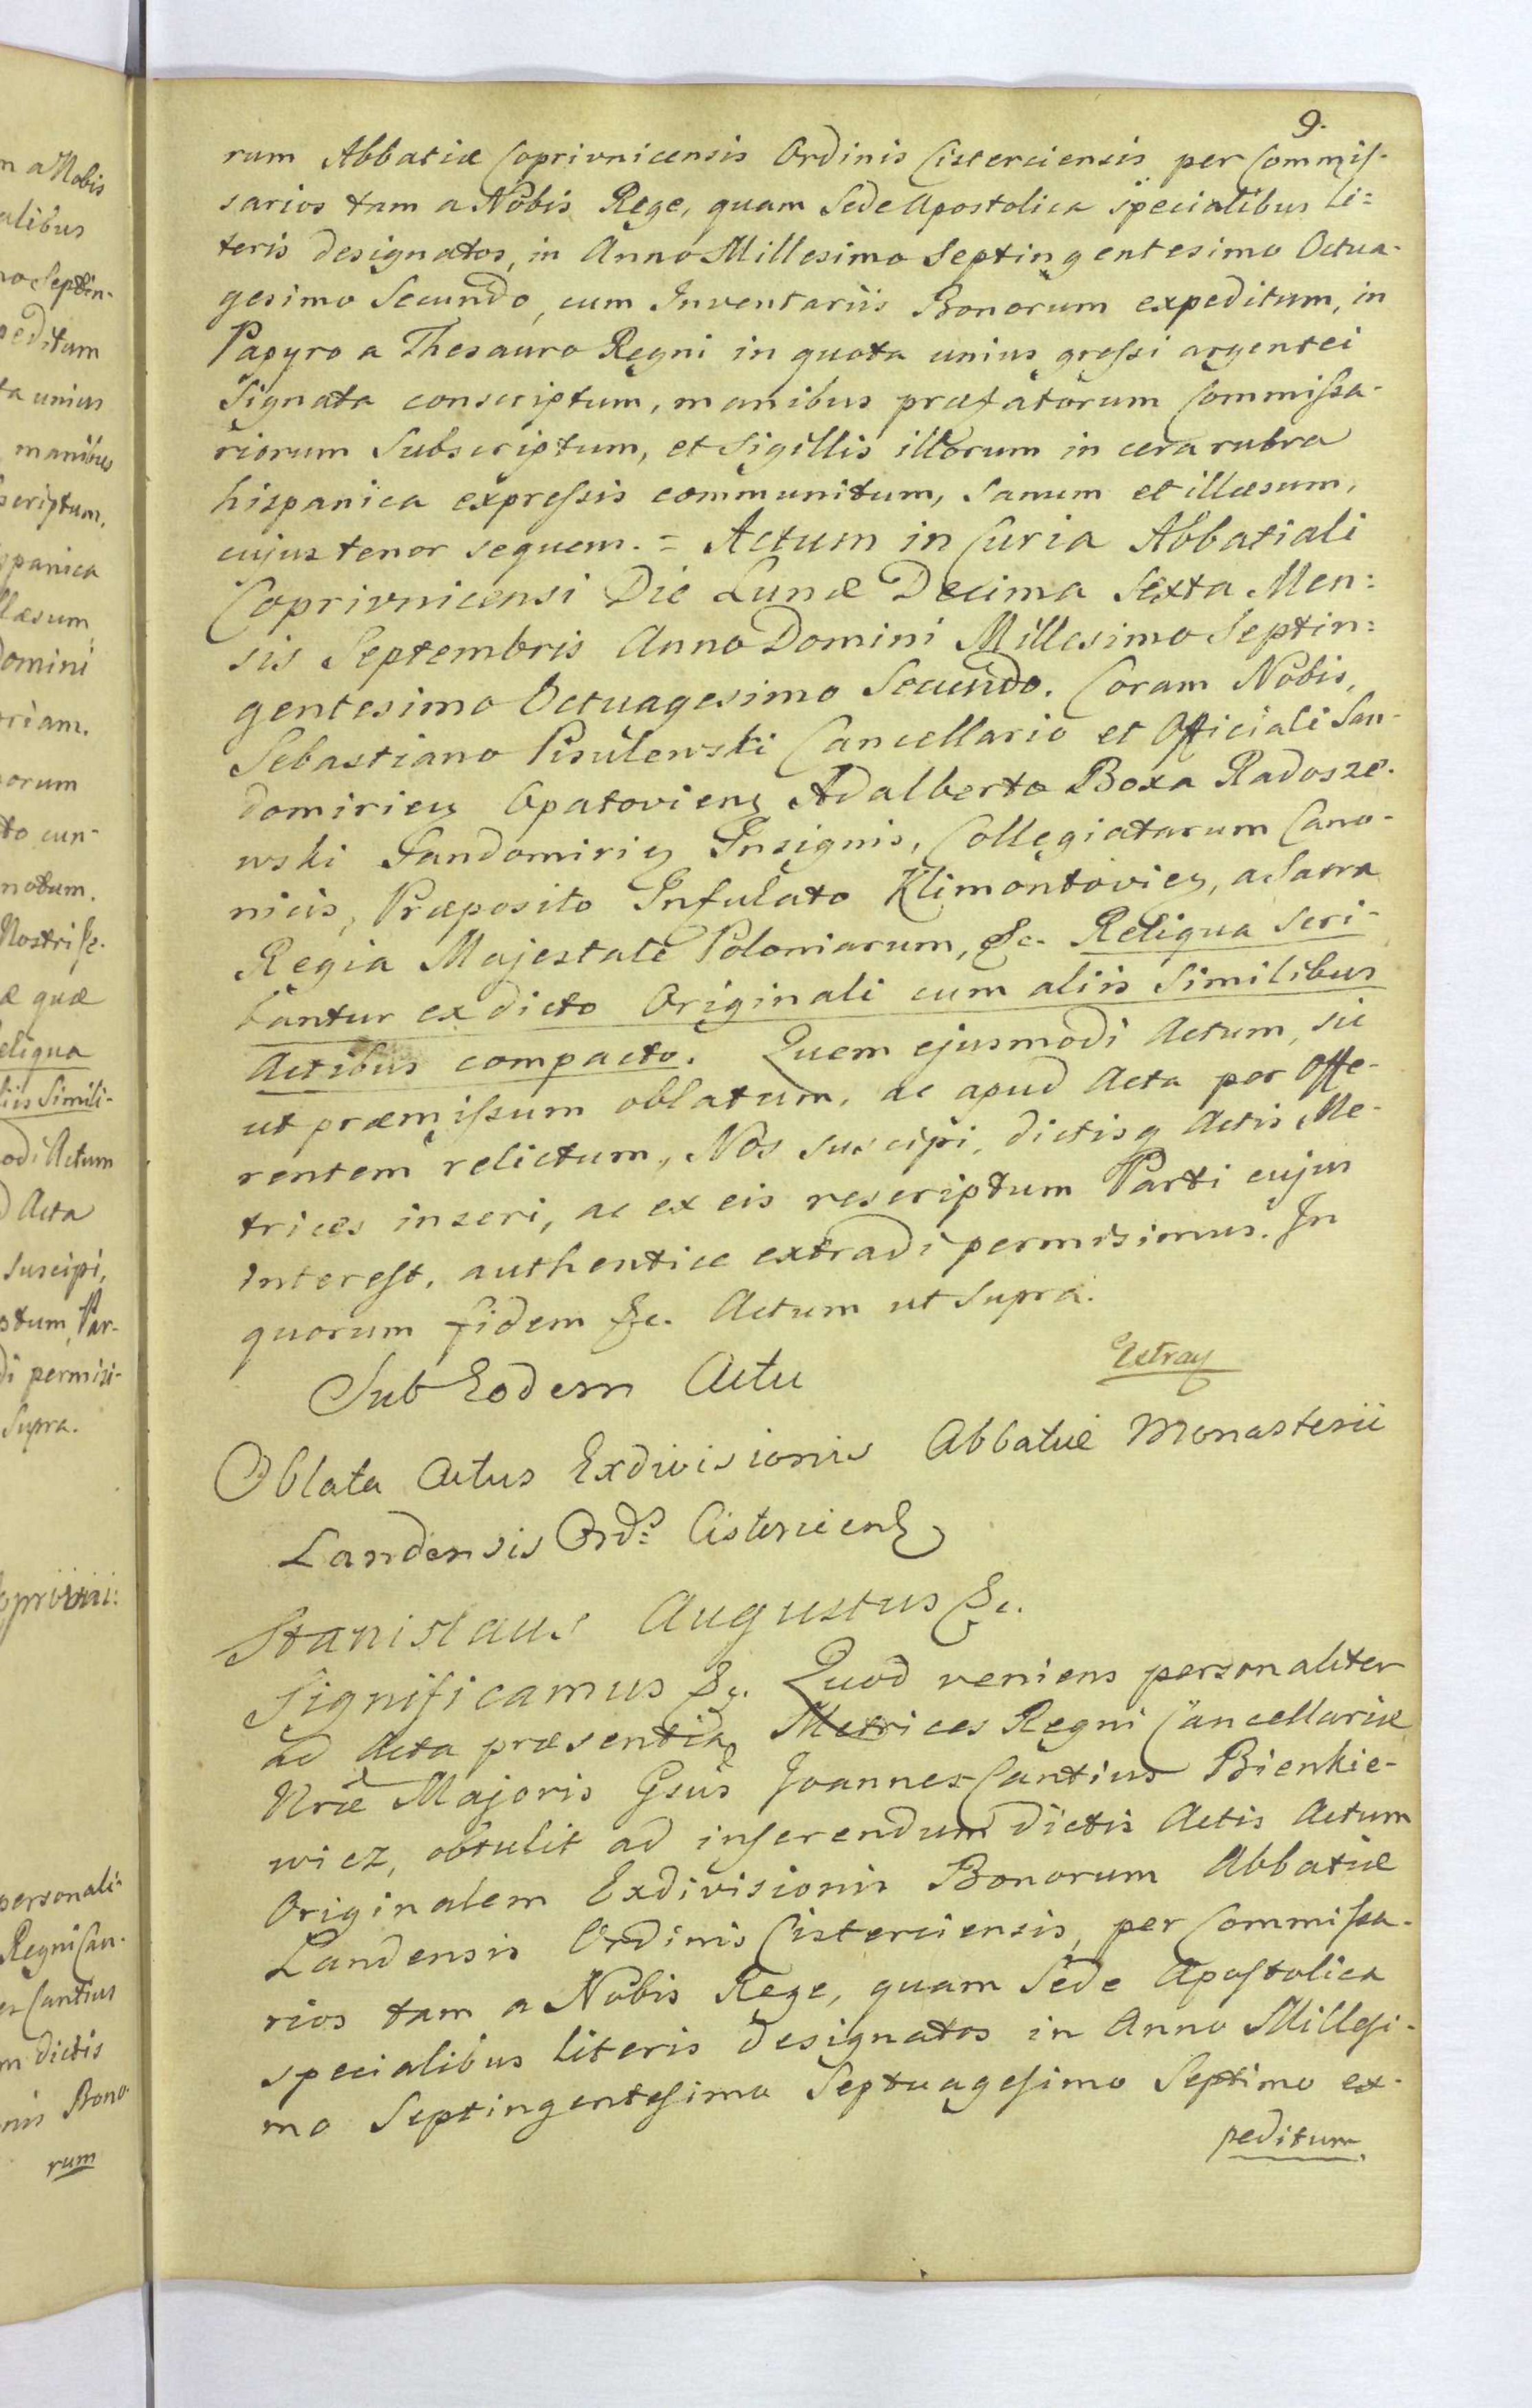 9.
rum Abbatiæ Coprivnicensis Ordinis Cisterciensis per Commis-
sarios tam a Nobis Rege, quam Sede Apostolica specialibus li=
teris designatos, in Anno Millesimo Septingentesimo Octua-
gesimo Secundo, cum Inventariis Bonorum expeditum, in
Papyro a Thesauro Regni in quota unius grossi argentei
Signata conscriptum, manibus præfatorum Commissa-
riorum Subscriptum, et Sigillis illorum in cera rubra
hispanica expressis communitum, Sanum et illæsum,
cujus tenor sequem. = Actum in Curia Abbatiali
Coprivnicensi Die Lunæ Decima Sexta Men=
sis Septembris Anno Domini Millesimo Septin=
gentesimo Octuagesimo Secundo. Coram Nobis,
Sebastiano Pisulewski Cancellario et Officiali San-
domirien Opatovien Adalberto Boxa Radosze-
wski Sandomirien Insignis, Collegiatarum Cano-
nicis, Præposito Infulato Klimontovien, a Sacra
Regia Majestate Poloniarum, &c. Reliqua Scri-
bantur ex dicto Originali cum aliis Similibus
Actibus compacto. Quem ejusmodi Actum, sic
ut præmissum oblatum, ac apud Acta per Offe-
rentem relictum, Nos suscipi, dictisq Actis Me-
trices inseri, ac ex eis rescriptum Parti cujus
interest, authentice extradi permisimus. In
quorum fidem &c. Actum ut Supra.
Extray
Sub Eodem Actu
Oblata Actus Exdivisionis Abbatiæ Monasterii
Landensis Ord̄s Cistercien
Stanislaus Augustus &c.
Significamus &c. Quod veniens personaliter
ad Acta præsentia Metrices Regni Cancellariæ
Nræ Majoris Gsus Joannes Cantius Bienkie-
wicz, obtulit ad inserendum dictis Actis Actum
Originalem Exdivisionis Bonorum Abbatiæ
Landensis Ordinis Cisterciensis, per Commissa-
rios tam a Nobis Rege, quam Sede Apostolica
specialibus literis designatos in Anno Millesi-
mo Septingentesimo Septuagesimo Septimo ex-
peditum